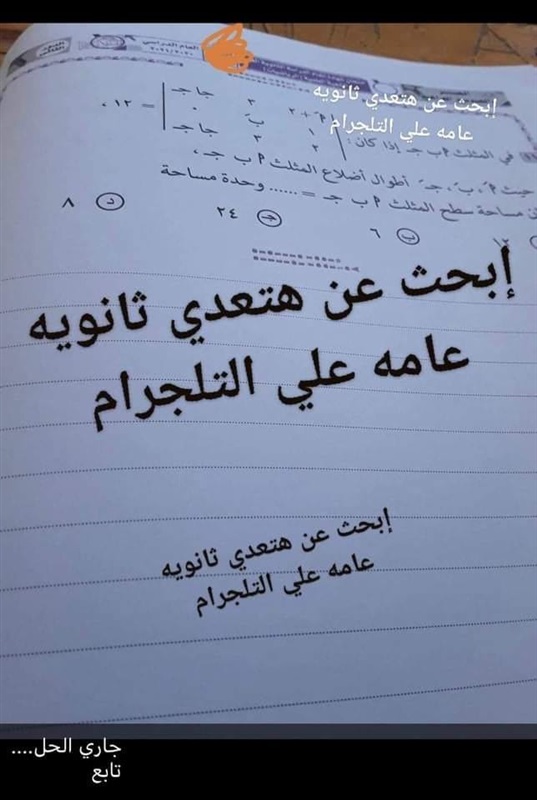 العام الدراسي
٢٠٢١/٢٠٢٠
إبحث عن هتعدي ثانويه
عامه علي التلجرام
في المثلث ٩ ب جـ إذا كان :
٢ + ٩َ ٣ جا جـ
١ بَ ٠
٢ ٣ جا جـ
= ١٢ ،
حيث ٩َ ، بَ ، جـَ أطوال أضلاع المثلث ٩ ب جـ ،
مساحة سطح المثلث ٩ ب جـ = ...... وحدة مساحة
١٢ ب ٦ جـ ٢٤ د ٨
إبحث عن هتعدي ثانويه
عامه علي التلجرام
إبحث عن هتعدي ثانويه
عامه علي التلجرام
جاري الحل....
تابع